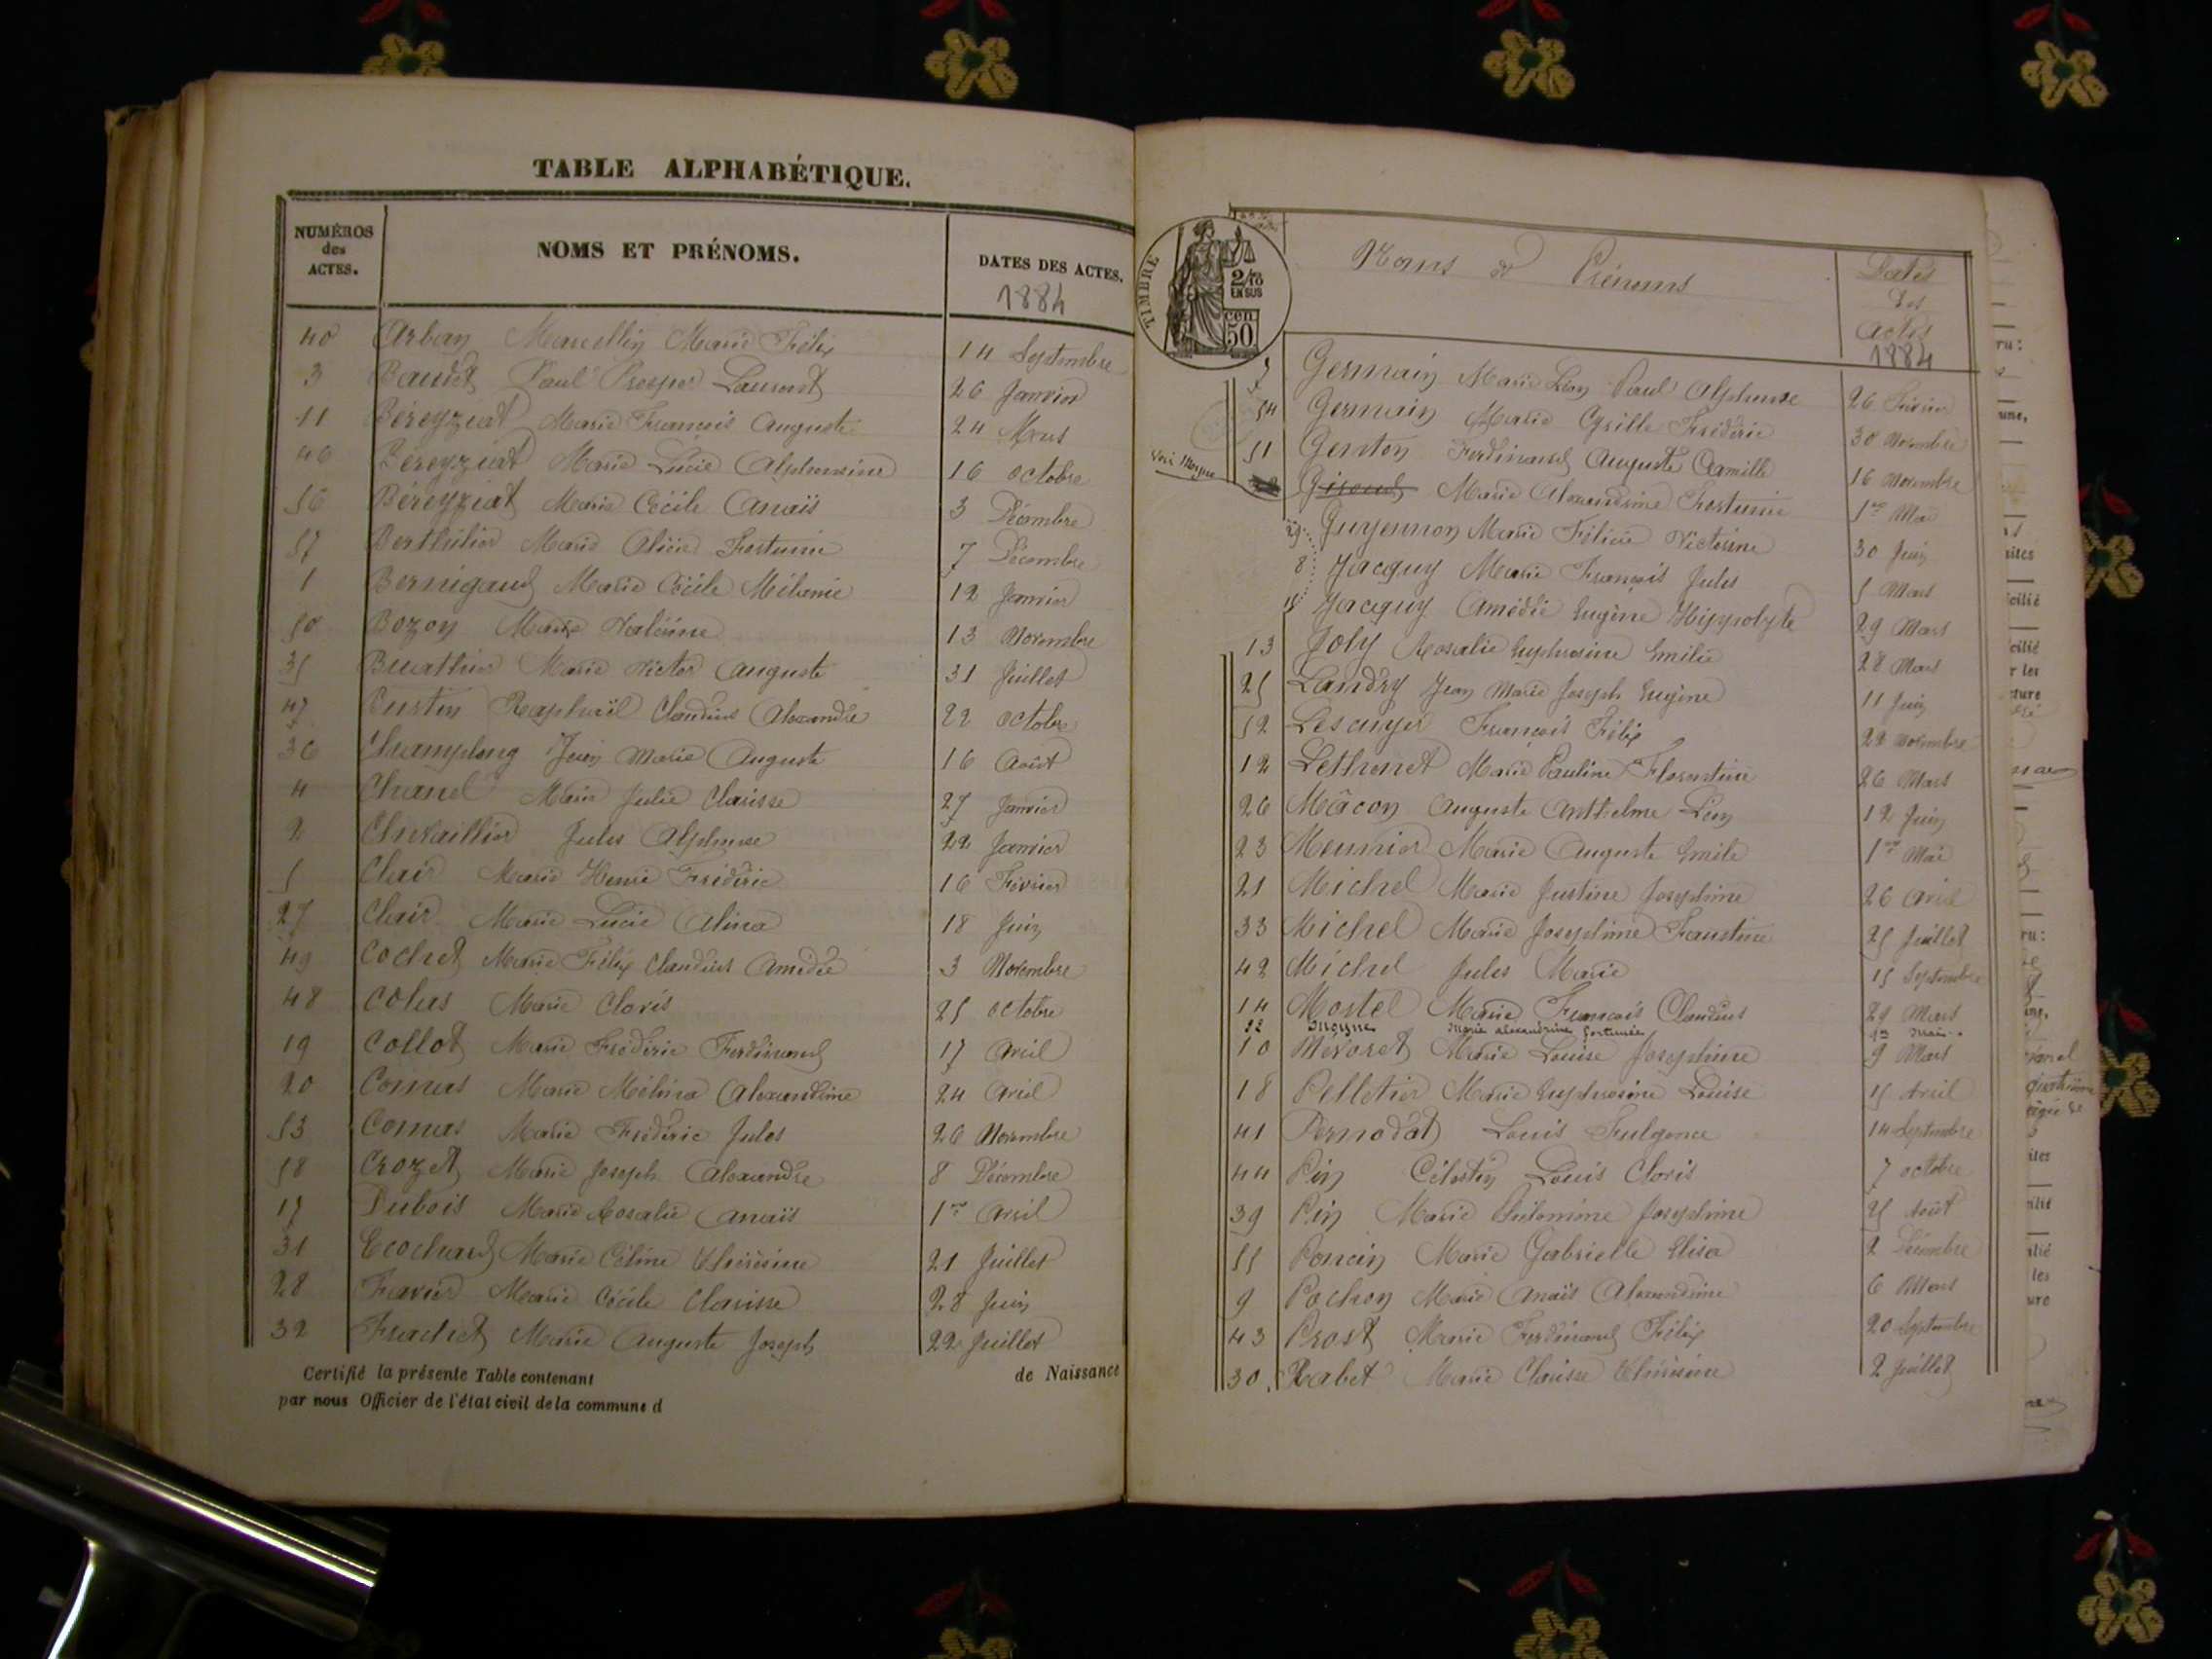 TABLE ALPHABÉTIQUE.
NUMÉROS
des
ACTES.
NOMS ET PRÉNOMS.
DATES DES ACTES.
1884
40 Arban Marcellin Marie Félix 14 Septembre
3 Baudet Paul Prosper Laurent 26 Janvier
11 Béreyziat Marie François Auguste 24 Mars
46 Béreyziat Marie Lucie Alphonsine 16 octobre
56 Béreyziat Marie Cécile Anaïs 3 Décembre
57 Berthilier Marie Alicie Fortunie 7 Décembre
1 Bernigaud Marie Cécile Mélanie 12 Janvier
50 Bozon Marie 13 Novembre
35 Buathier Marie Victor Auguste 31 Juillet
47 Curtin Raphaël Claudius Alexandre 22 octobre
36 Champlong Jean Marie Auguste 16 Août
4 Chanel Marie Julie Clarisse 27 Janvier
2 Chevaillier Jules Alphonse 22 Janvier
5 Clair Marie Henri Frédéric 16 Février
27 Clair Marie Lucie Alina 18 Juin
49 Cochet Marie Félix Claudius Amédée 3 Novembre
48 Colas Marie Cloris 25 octobre
19 Collot Marie Frédéric Ferdinand 17 Avril
20 Comas Marie Mélina Alexandrine 24 Avril
53 Comas Marie Frédéric Jules 26 Novembre
58 Crozet Marie Joseph Alexandre 8 Décembre
17 Dubois Marie Rosalie Anaïs 1er Avril
31 Ecochard Marie Céline Thérésine 21 Juillet
28 Favier Marie Cécile Clarisse 28 Juin
32 Frachet Marie Auguste Joseph 22 Juillet
Certifié la présente Table contenant de Naissance
par nous Officier de l'état civil de la commune d
TIMBRE
2/10
EN SUS
50 cen
Noms et Prénoms
Dates
des
actes
1884
7 Germain Marie Léon Paul Alphonse 26 Février
54 Germain Marie Cyrille Frédéric 30 Novembre
51 Genton Ferdinand Auguste Camille 16 Novembre
Voir Moyne Giroud Marie Alexandrine Fortunie 1er Mai
29 Guyennon Marie Félicie Victorine 30 Juin
8 Jacquy Marie François Jules 5 Mars
15 Jacquy Amédée Eugène Hippolyte 29 Mars
13 Joly Rosalie Euphrosine Emilie 28 Mars
25 Landry Jean Marie Joseph Eugène 11 Juin
52 Lescuyer François Félix 22 Novembre
12 Lethenet Marie Pauline Florentine 26 Mars
26 Mâcon Auguste Anthelme Léon 12 Juin
23 Meunier Marie Auguste Emile 1er Mai
21 Michel Marie Justine Joséphine 26 Avril
33 Michel Marie Joséphine Faustine 25 Juillet
42 Michel Jules Marie 15 Septembre
14 Mortel Marie François Claudius 29 Mars
22 Moyne Marie Alexandrine Fortunée 1er Mai
10 Mévoret Marie Louise Joséphine 9 Mars
18 Pelletier Marie Euphrosine Louise 15 Avril
41 Pernodat Louis Fulgence 14 Septembre
44 Pin Célestin Louis Cloris 7 octobre
39 Pin Marie Philomine Joséphine 25 Août
55 Poncin Marie Gabrielle Elisa 2 Décembre
9 Pochon Marie Anaïs Alexandrine 6 Mars
43 Prost Marie Ferdinand Félix 20 Septembre
30 Rabet Marie Clarisse Thérésine 2 Juillet